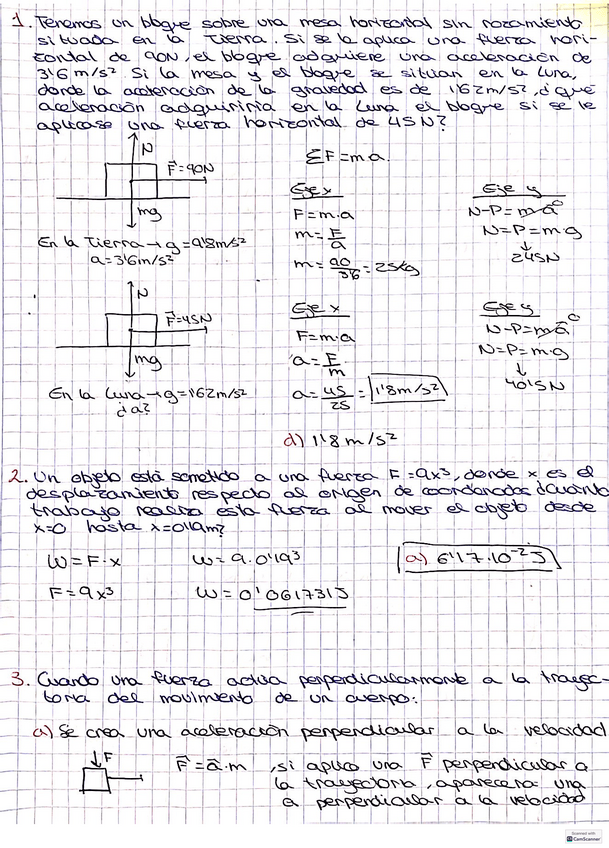 1. Tenemos un bloque sobre una mesa horizontal sin rozamiento
situada en la Tierra. Si se la aplica una fuerza hori-
zontal de 90N, el bloque adquiere una aceleración de
3'6 m/s². Si la mesa y el bloque se situan en la Luna,
donde la aceleración de la gravedad es de 1'62m/s², ¿qué
aceleración adquiriría en la Luna el bloque si se le
aplicase una fuerza horizontal de 45N?
N
F⃗=90N
mg
En la Tierra → g=9'8m/s²
a=3'6m/s²
ΣF=m·a.
Eje x
F=m·a
m=F/a
m=90/3'6=25kg
Eje y
N-P=m·a⁰
N=P=m·g
↓
245N
N
F⃗=45N
mg
En la Luna → g=1'62m/s²
¿a?
Eje x
F=m·a
a=F/m
a=45/25=1'8m/s²
Eje y
N-P=m·a⃗⁰
N=P=m·g
↓
40'5N
d) 1'8 m/s²
2. Un objeto está sometido a una fuerza F=9x³, donde x es el
desplazamiento respecto al origen de coordenadas ¿Cuánto
trabajo realiza esta fuerza al mover el objeto desde
x=0 hasta x=0'19m?
W=F·x
W=9·0'19³
a) 6'17·10⁻²J
F=9x³
W=0'061731J
3. Cuando una fuerza actúa perpendicularmente a la trayec-
toria del movimiento de un cuerpo:
a) Se crea una aceleración perpendicular a la velocidad
F
F⃗=a⃗·m, si aplico una F⃗ perpendicular a
la trayectoria, aparecerá una
a perpendicular a la velocidad
Scanned with
CS CamScanner